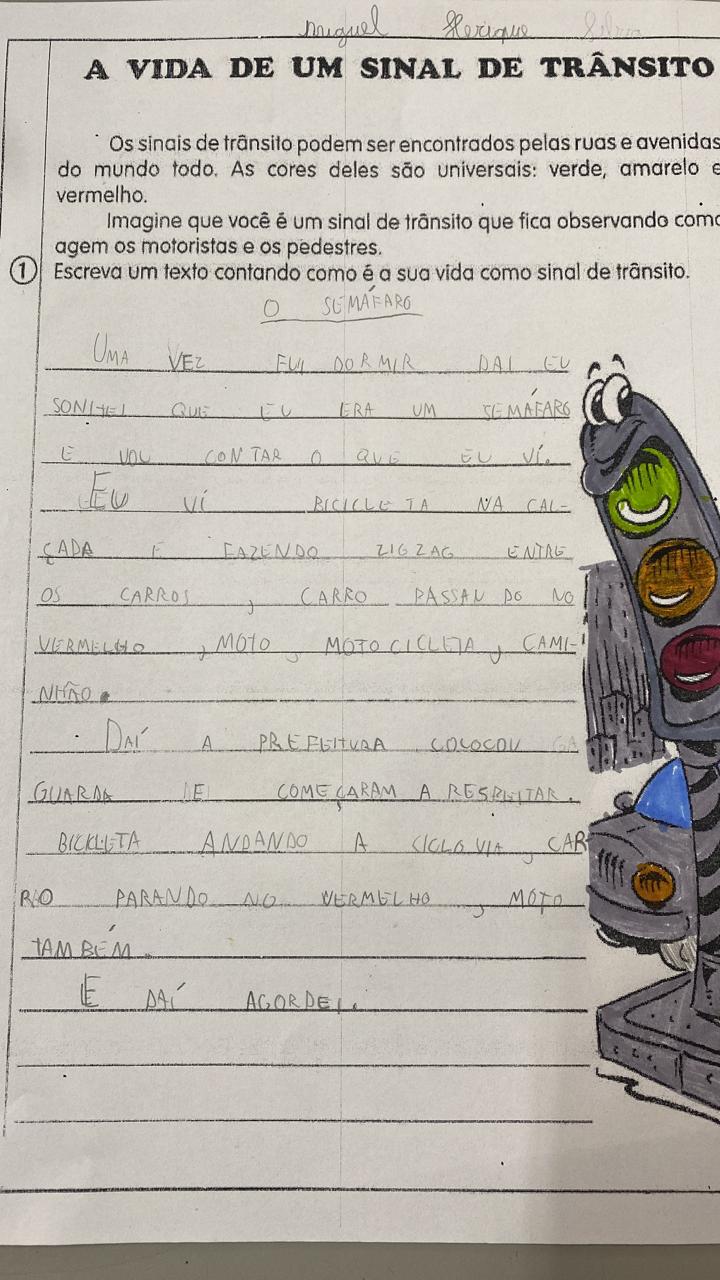 Miguel Herique Silva
A VIDA DE UM SINAL DE TRÂNSITO
Os sinais de trânsito podem ser encontrados pelas ruas e avenidas
do mundo todo. As cores deles são universais: verde, amarelo e
vermelho.
Imagine que você é um sinal de trânsito que fica observando como
agem os motoristas e os pedestres.
1 Escreva um texto contando como é a sua vida como sinal de trânsito.
O SEMÁFARO
UMA VEZ FUI DORMIR DAI EU
SONHEI QUE EU ERA UM SEMÁFARO
E VOU CONTAR O QUE EU VÍ.
EU VÍ BICICLETA NA CAL-
ÇADA E FAZENDO ZIGZAG ENTRE
OS CARROS, CARRO PASSANDO NO
VERMELHO, MOTO, MOTOCICLETA, CAMI-
NHÃO.
DAÍ A PREFEITURA COLOCOU GA
GUARDA E COMEÇARAM A RESPEITAR.
BICICLETA ANDANDO A CICLOVIA, CAR
RO PARANDO NO VERMELHO, MOTO
TAMBÉM.
E DAÍ AGORDEI.